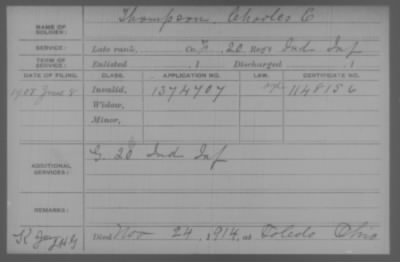 NAME OF SOLDIER: Thompson, Charles C
SERVICE: Late rank, Co. F. 20 Reg't Ind Inf
TERM OF SERVICE: Enlisted , 1 Discharged , 1
DATE OF FILING. CLASS. APPLICATION NO. LAW. CERTIFICATE NO.
1908 June 8 Invalid, 1374707 1148156
Widow,
Minor,
ADDITIONAL SERVICES: G. 20 Ind Inf
REMARKS:
Died Nov 24, 1914, at Toledo Ohio